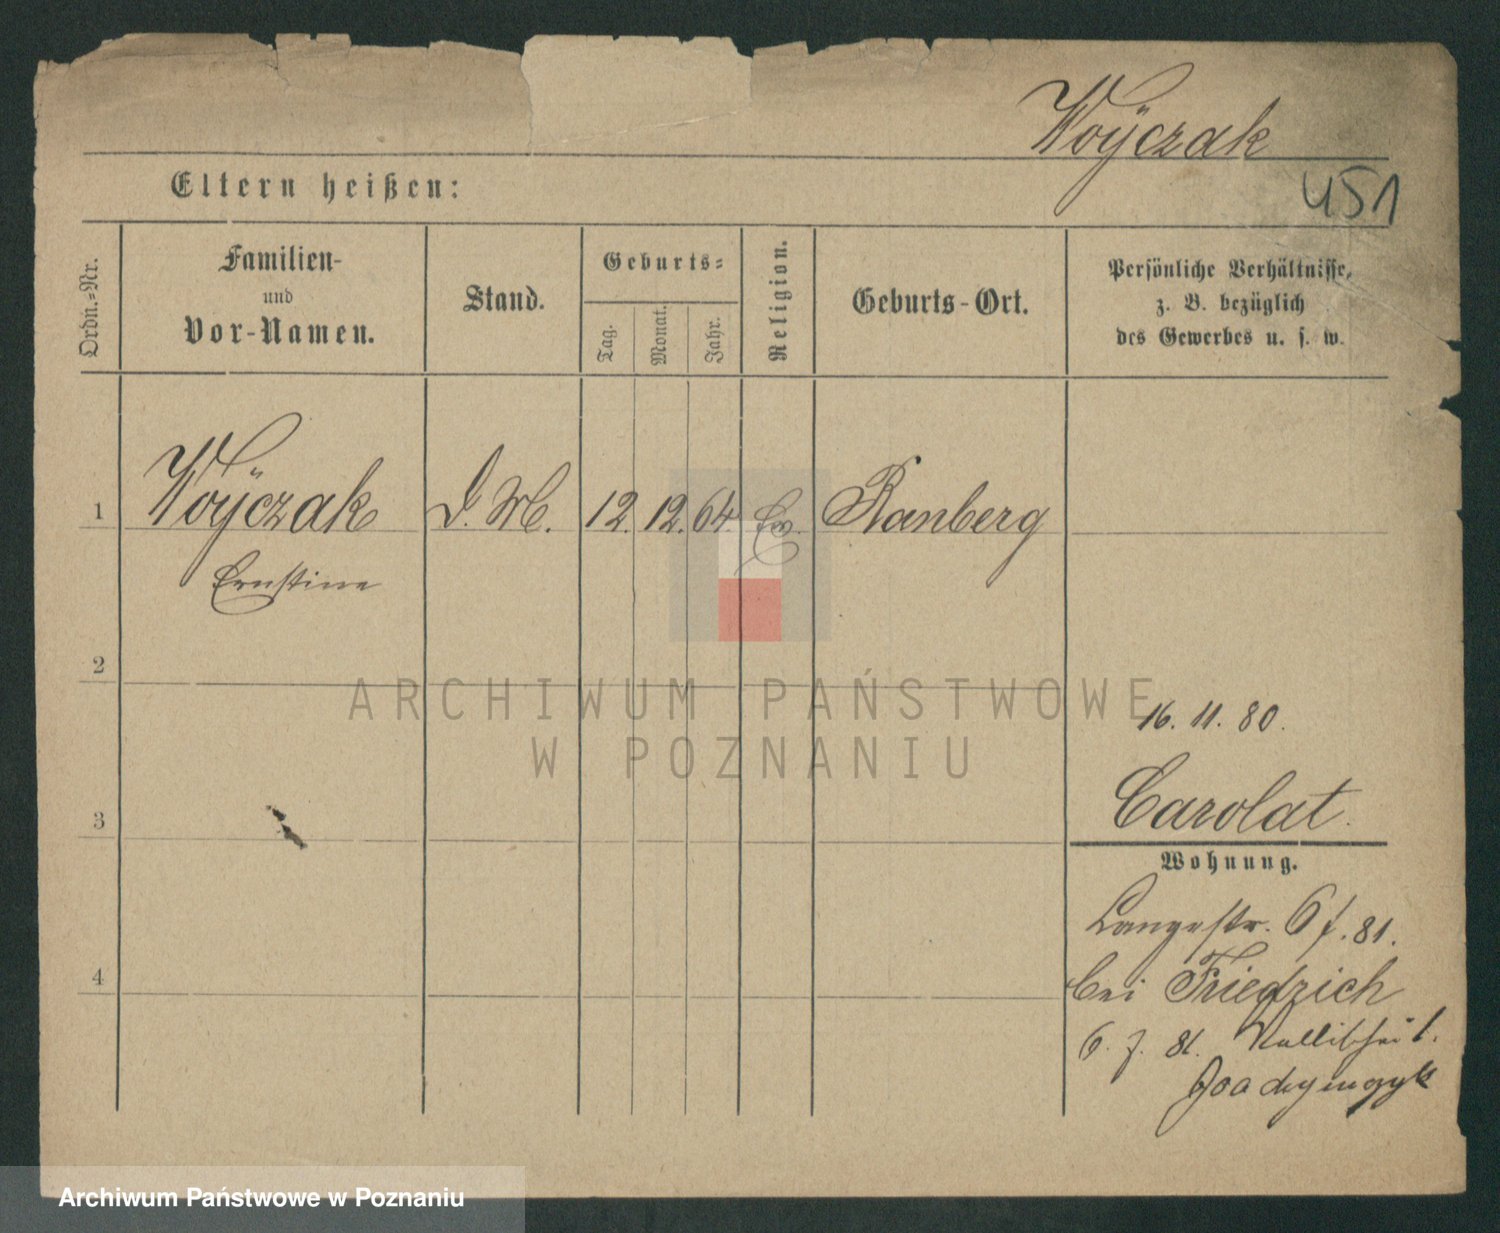 Woÿczak
451
Eltern heißen:
Ordn.-Nr.
Familien-
und
Vor-Namen.
Stand.
Geburts-
Tag.
Monat.
Jahr.
Religion.
Geburts-Ort.
Persönliche Verhältnisse,
z. B. bezüglich
des Gewerbes u. s. w.
1 Woÿczak D. M. 12. 12. 64. Ev. Ranberg
Ernstine
2
ARCHIWUM PAŃSTWOWE
W POZNANIU
16. 11. 80.
3
Carolat.
Wohnung.
Langestr. 6 81.
bei Friedrich
4
6. 7. 81. 1.
Archiwum Państwowe w Poznaniu